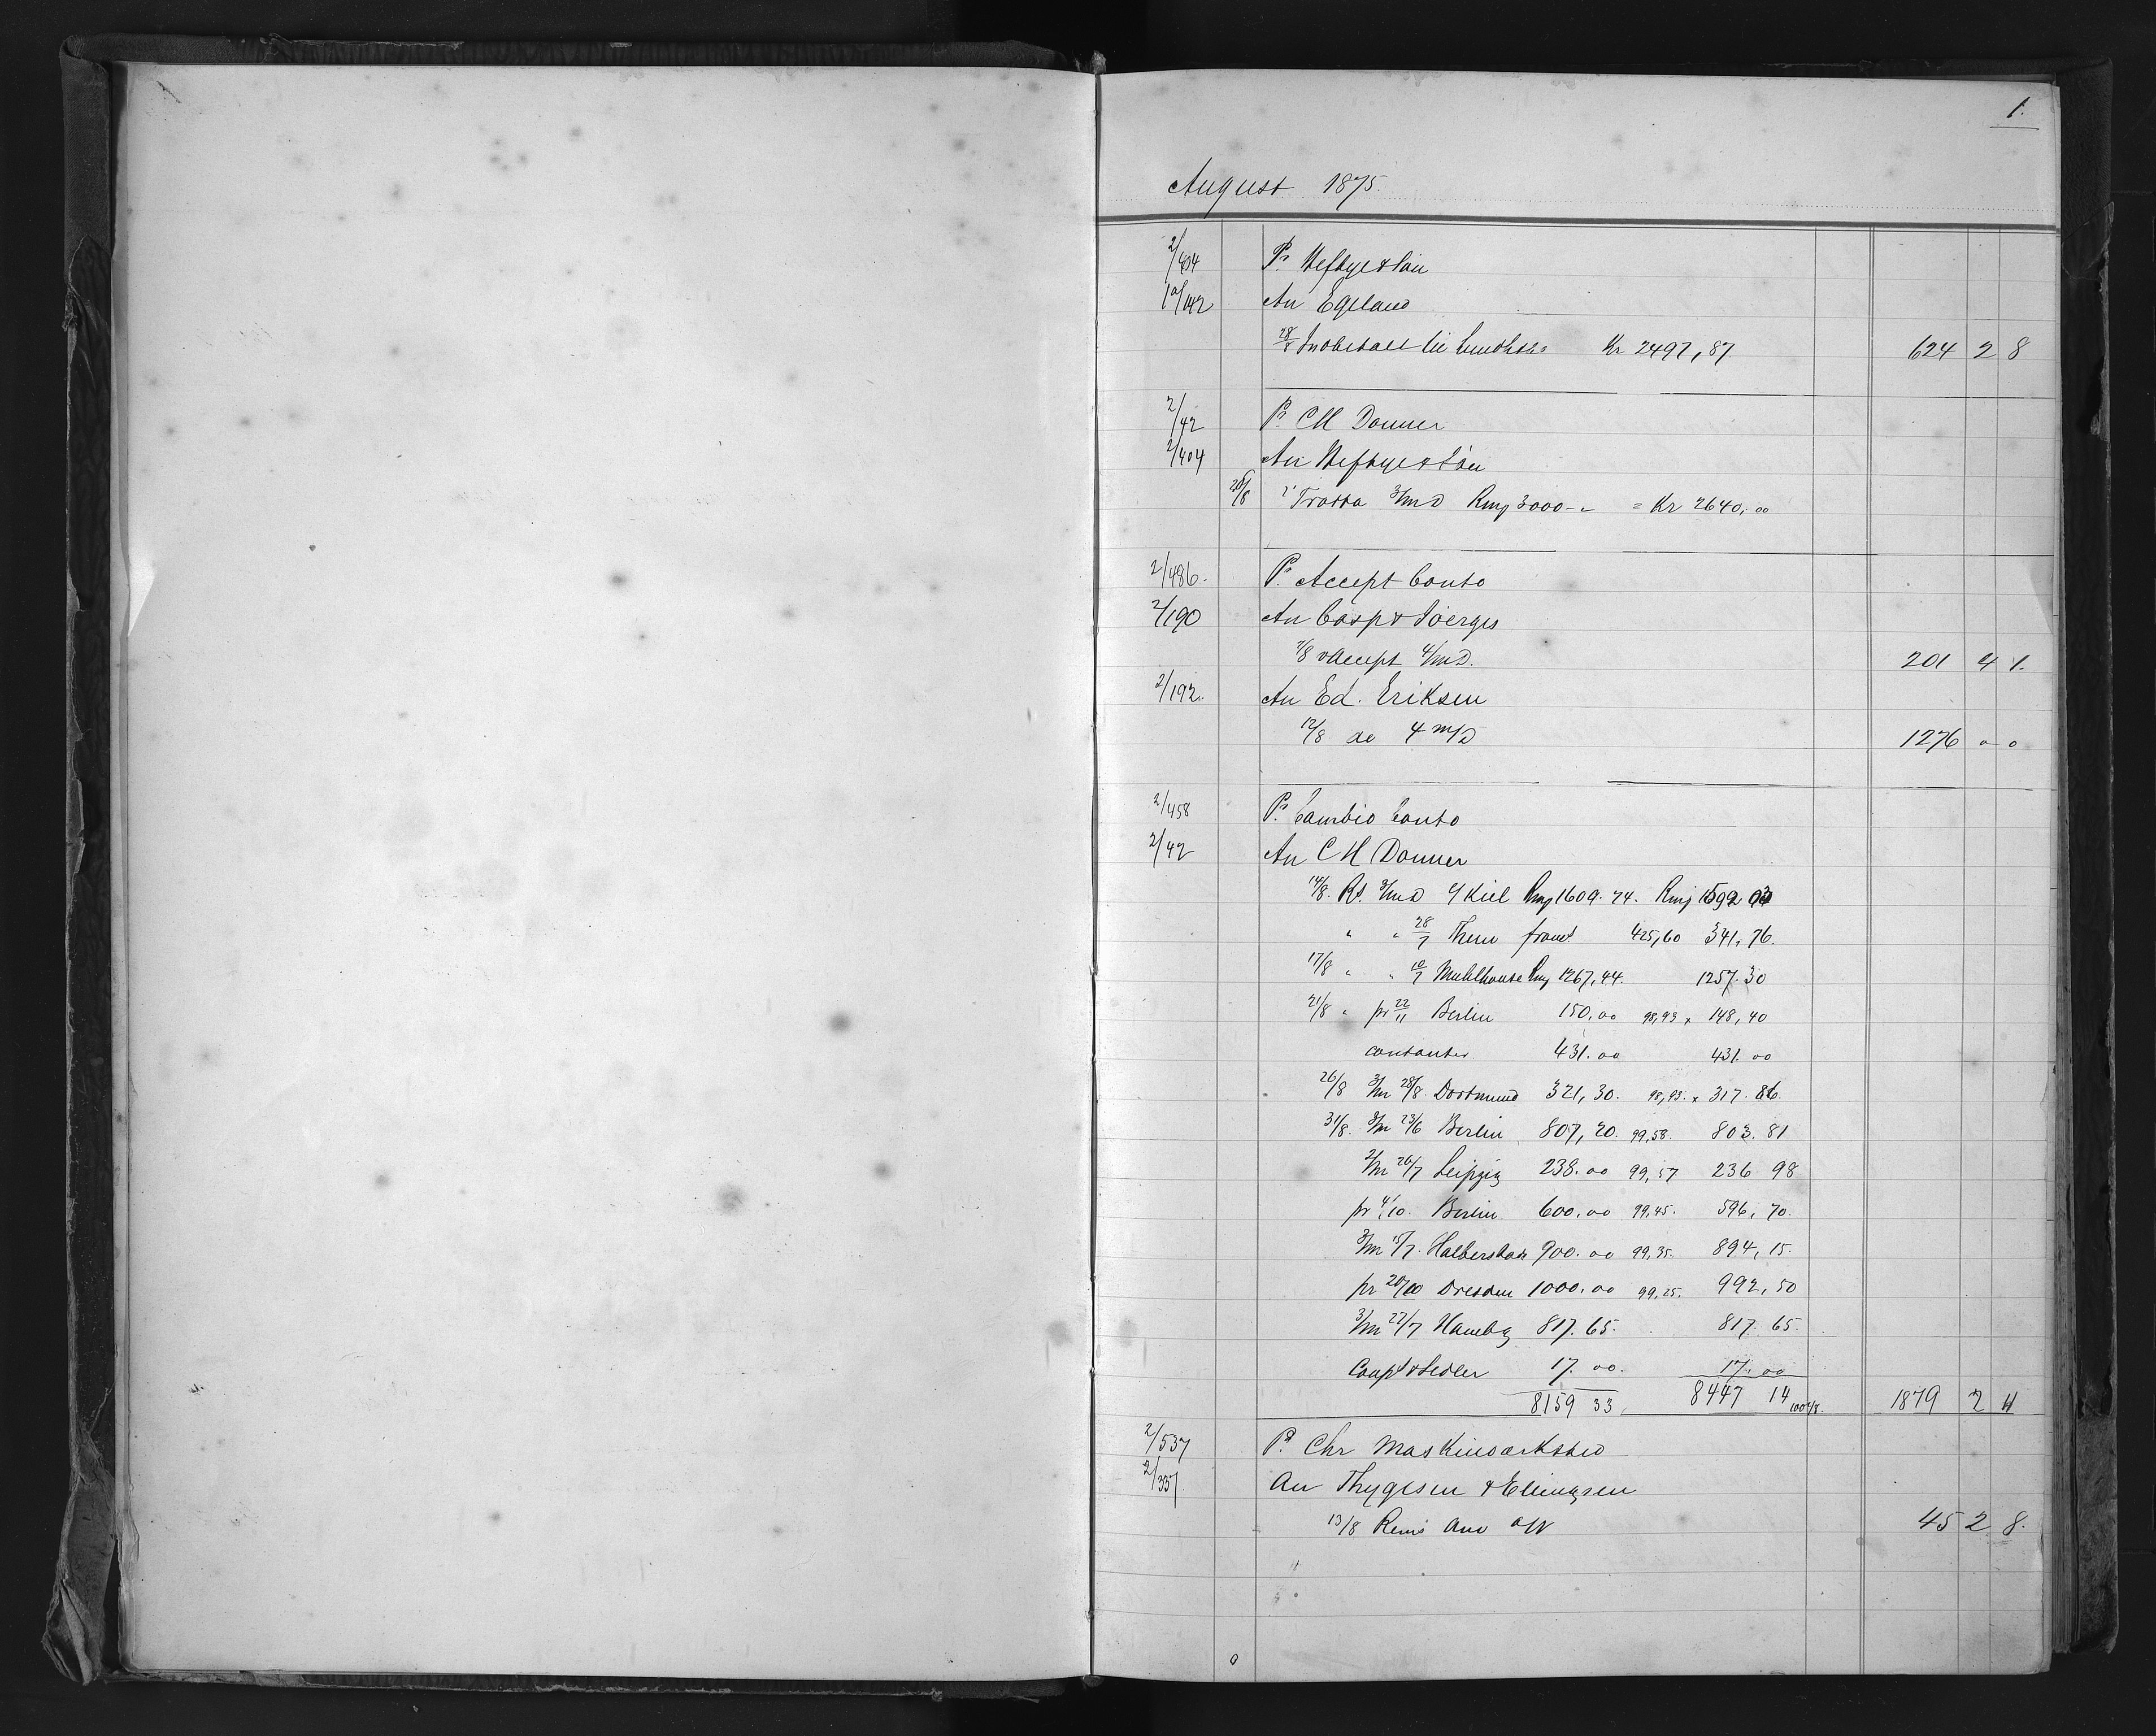 1.
August 1875.
2/404 Pr Heftye & Søn
10/142 An Egeland
28/8 Indbetalt Kr 2497,87 624 2 8
2/42 Pr CH Donner
2/404 An Heftye & Søn
28/8 Tratta 3/md Rmg 3000 - = Kr 2640,00
2/486. Pr Accept Conto
2/190 An Casp & Joerges
7/8 Accept 4/mD. 201 4 1.
2/192. An Ed. Eriksen
12/8 do 4 m/D 1276 0 0
2/458 Pr Cambio Conto
2/42 An CH Donner
14/8. Rs. 3/md Kiel Rmg 1609.74. Rmg 1592 03
" " 28/7 425,60 341,76.
17/8 " " 10/7 Muhlhouse Rmg 1267,44. 1257.30
21/8 " pr 22/11 Berlin 150,00 98,93 x 148,40
contanter 431.00 431.00
26/8 3/m 28/8. Dortmund 321,30. 98,93. x 317.86.
31/8. 3/m 23/6 Berlin 807,20. 99,58. 803.81
2/m 26/7 Leipzig 238.00 99,57 236 98
pr 4/10. Berlin 600,00 99,45. 596,70.
3/m 15/7. Halberstadt 900.00 99,35. 894,15.
pr 20/10 Dresden 1000.00 99,25. 992,50
3/m 22/7 Hambg 817.65. 817.65.
Coup & Sedler 17.00. 17.00
8159 33, 8447 14 1879 2 4
2/537 Pr Chr Maskinværksted
2/337 An Thygesen & Ellingsen
13/8 Rems 45 2 8.